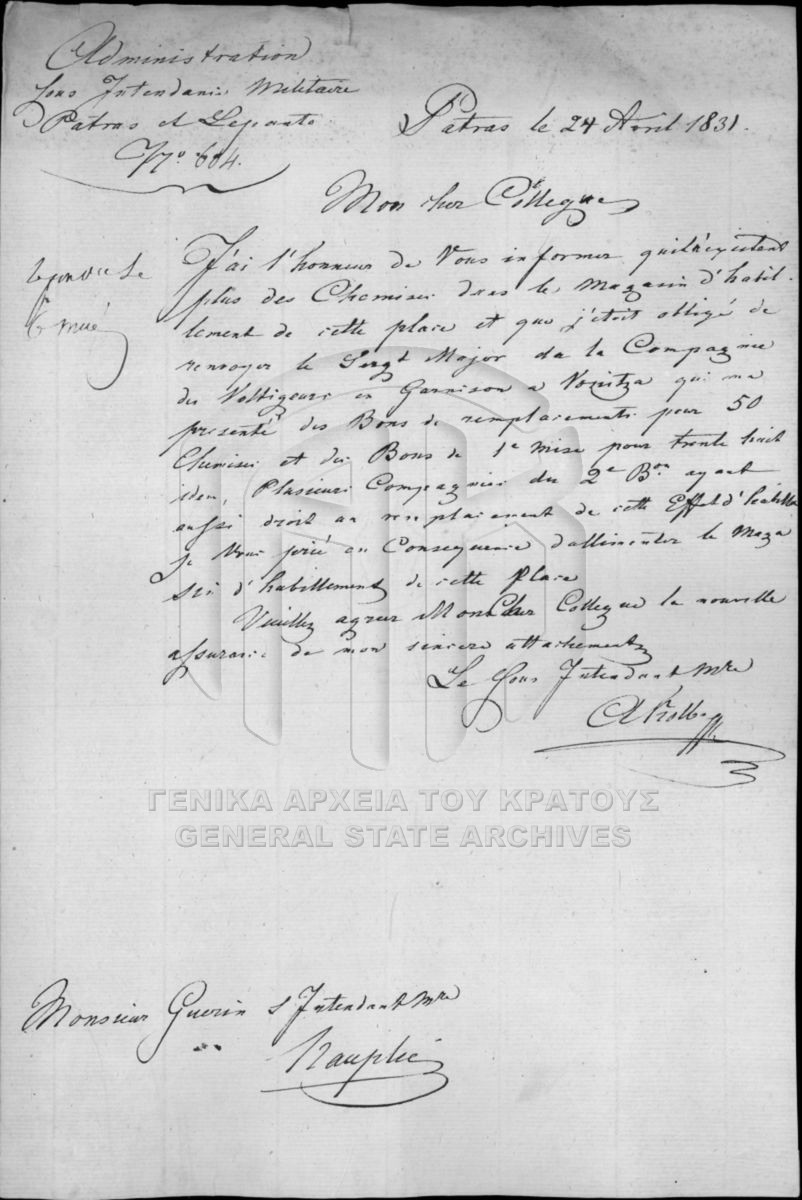 Administration
Sous Intendance Militaire
Patras et Lepante
No. 604.
Patras le 24 Avril 1831.
Mon cher Collegue
J'ai l'honneur de Vous informer qu'il n'existent
plus des Chemises dans le Magasin d'habil-
lement de cette place et que j'etoit obligé de
renvoyer le Sergt Major de la Compagnie
des Voltigeurs en Garnison a Vozitza qui ma
presenté des Bons de remplacements pour 50
Chemises et des Bons de 1e mise pour trente huit
idem, Plusieurs Compagnies du 2e Bon ayant
aussi droit au remplacement de cette Effet d'habille
je Vous prie en Consequence d'allimenter le Maga
sin d'habillement de cette Place
Veuillez agreer Mon Cher Collegue la nouvelle
assurance de mon sincere attachement
Le Sous Intendant Mre
ΓΕΝΙΚΑ ΑΡΧΕΙΑ ΤΟΥ ΚΡΑΤΟΥΣ
GENERAL STATE ARCHIVES
Monsieur Guerin S Intendant Mre
Nauplie